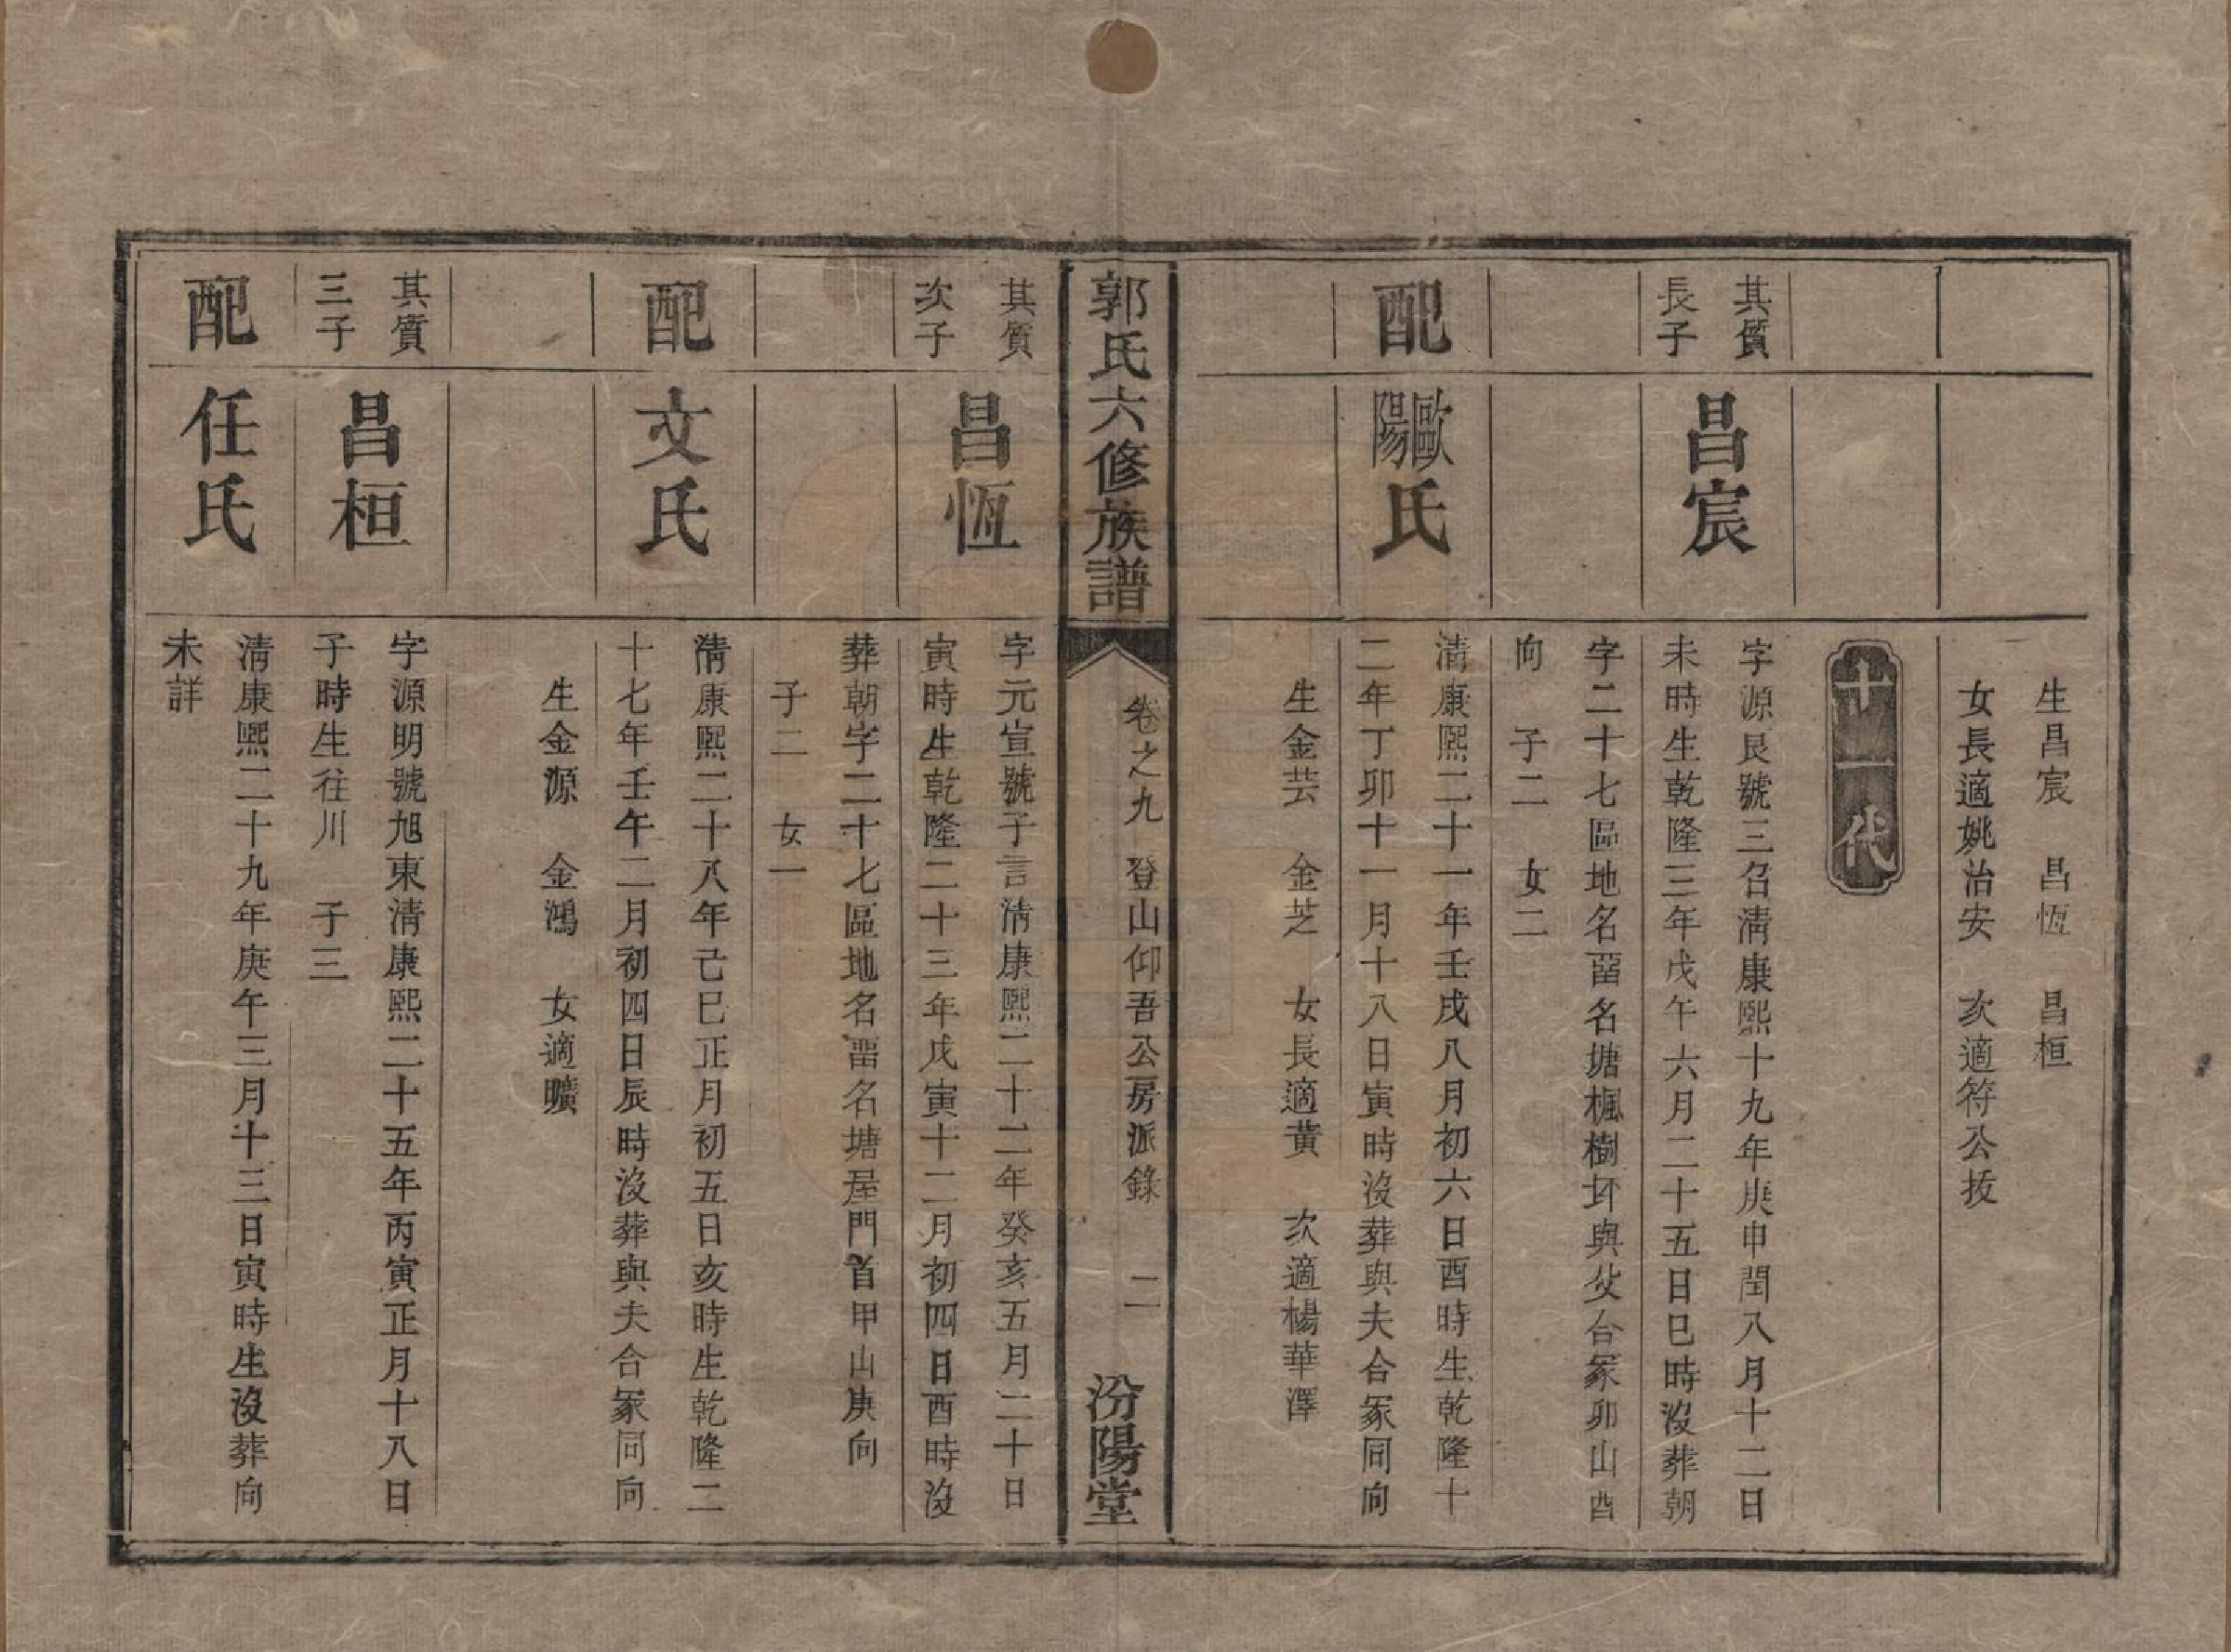 生昌宸　昌恆　昌桓
女長適姚治安　次適符公抜
十一代
其質
長子
昌宸
字源艮號三召清康熙十九年庚申閏八月十二日
未時生乾隆三年戊午六月二十五日巳時沒葬朝
字二十七區地名畱名塘楓樹坏與父合冢卯山酉
向　子二　女二
配
歐陽氏
清康熙二十一年壬戌八月初六日酉時生乾隆十
二年丁卯十一月十八日寅時沒葬與夫合冢同向
生金芸　金芝　女長適黃　次適楊華澤
郭氏六修族譜
卷之九　登山仰吾公房派錄　二
汾陽堂
其質
次子
昌恆
字元宣號子言清康熙二十二年癸亥五月二十日
寅時生乾隆二十三年戊寅十二月初四日酉時沒
葬朝字二十七區地名畱名塘屋門首甲山庚向
子二　女一
配
文氏
清康熙二十八年己巳正月初五日亥時生乾隆二
十七年壬午二月初四日辰時沒葬與夫合冢同向
生金源　金鴻　女適曠
其質
三子
昌桓
字源明號旭東清康熙二十五年丙寅正月十八日
子時生往川　子三
配
任氏
清康熙二十九年庚午三月十三日寅時生沒葬向
未詳